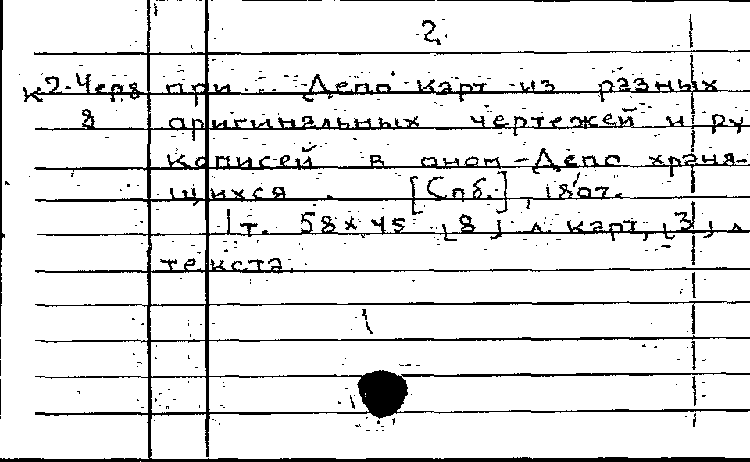 2.
К2-Черв при ... Депо карт из разных
8 оригинальных чертежей и ру
кописей в оном-Депо храня-
щихся . [Спб.], 1807.
1 т. 58х45 [8] л. карт, [3] л
текста.